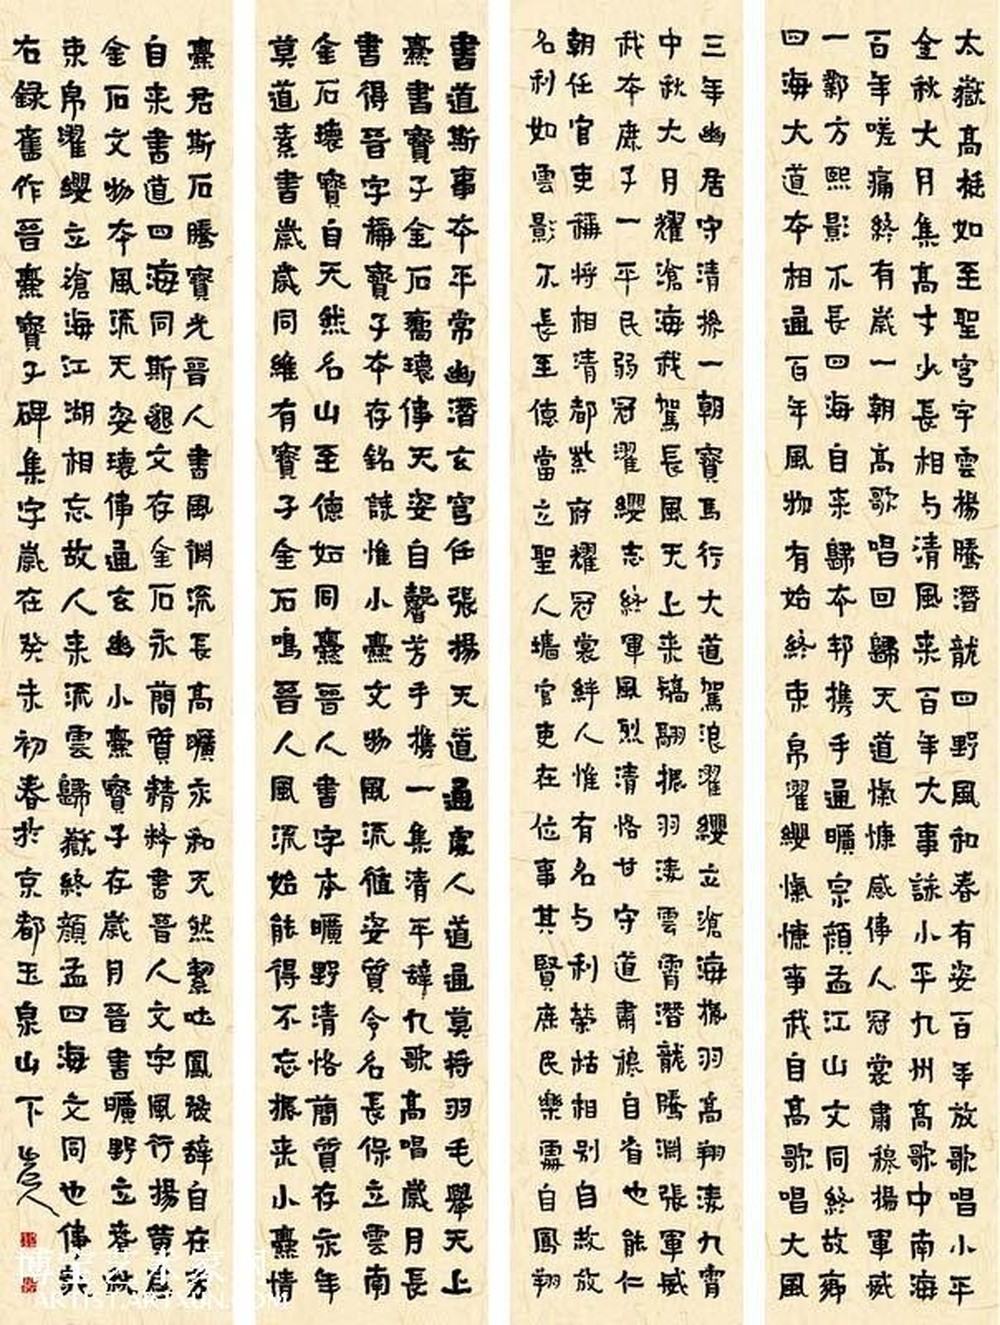 太嶽高挺如至聖穹宇雲揚騰潛龍四野風和春有姿百年放歌唱小平
金秋大月集高才少長相与清風来百年大事詠小平九州高歌中南海
百年嗟痛終有歲一朝高歌唱回歸天道慨慷感偉人冠裳肅穆揚軍威
一鄰方熙影不長四海自来歸本邦攜手通曠宗顏孟江山文同終故鄉
四海大道本相通百年風物有始終束帛濯纓慨慷事我自高歌唱大風
三年幽居守清操一朝寶馬行大道駕浪濯纓立滄海振羽高翔淩九霄
中秋大月耀滄海我駕長風天上来矯翮振羽淩雲霄潛龍騰淵張軍威
我本庶子一平民弱冠濯纓志終軍風烈清恪甘守道肅穆自省也能仁
朝任官吏稱將相清都紫府耀冠裳絆人惟有名与利榮枯相別自故放
名利如雲影不長至德當立聖人墻官吏在位事其賢庶民樂處自鳳翔
書道斯事本平常幽潛玄穹任張揚天道通處人道通莫將羽毛舉天上
爨書寶子金石響瓌偉天姿自馨芳手攜一集清平辭九歌高唱歲月長
書得晉字稱寶子本存銘誄惟小爨文物風流雄姿質令名長保立雲南
金石瓌寶自天然名山至德如同爨晉人書字本曠野清恪簡質存永年
莫道素書歲歲同維有寶子金石鳴晉人風流始能得不忘振来小爨情
爨君斯石騰寶光晉人書風淵流長高曠永和天然絜吐鳳發辭自在芳
自来書道四海同斯邈文存金石永簡質精粹書晉人文字風行揚黃
金石文物本風流天姿瓌偉通玄幽小爨寶子在歲月晉書曠野立春秋
束帛濯纓立滄海江湖相忘故人来流雲歸嶽終顏孟四海文同也偉哉
右録舊作晉爨寶子碑集字歲在癸未初春於京都玉泉山下
ARTIST.ARTXUN.COM